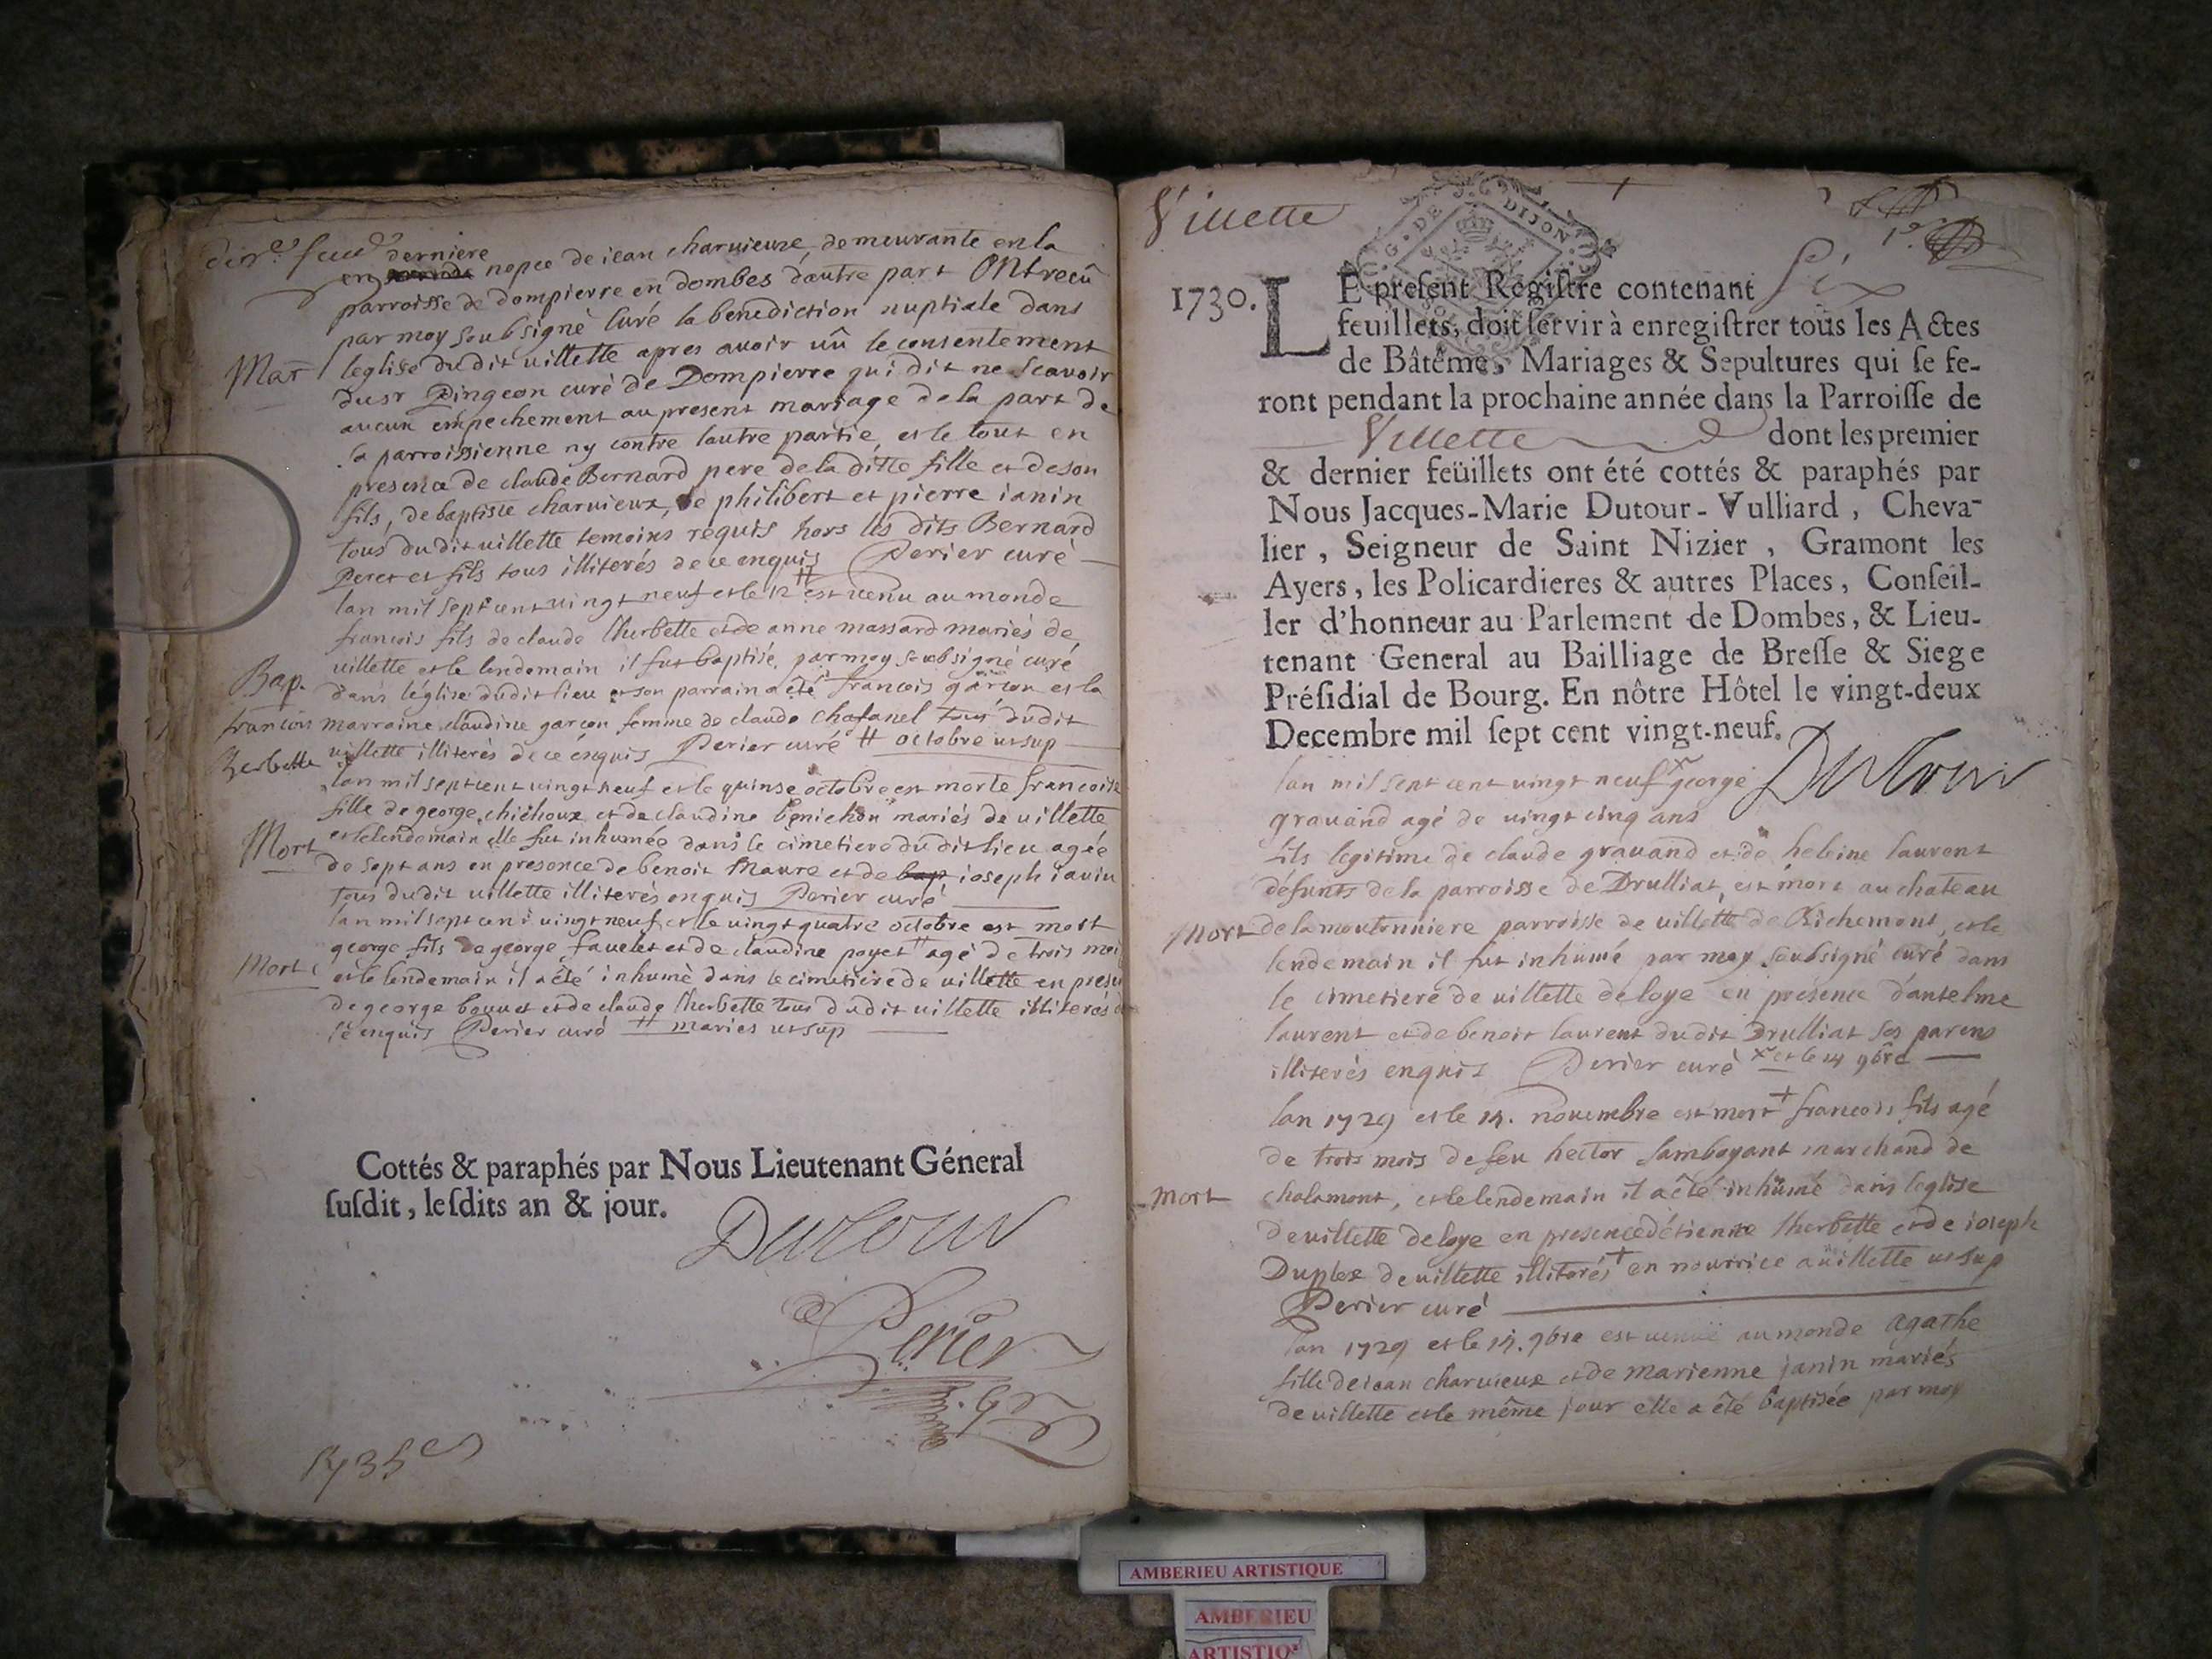 derniere
nepce de iean charuieux, demeurante en la
parroisse de dompierre en dombes dautre part ONt recû
par moy soubsigné Curé la benediction nuptiale dans
Mar leglise dudit uillette apres auoir uû le consentement
du sr Pingeon curé de Dompierre qui dit ne scauoir
aucun empechement au present mariage de la part de
sa parroissienne ny contre lautre partie, et le tout en
presence de claude Bernard pere de la ditte fille et de son
fils, de baptiste charuieux, de philibert et pierre ianin
tous dudit uillette temoins requis hors les dits Bernard
Pere et fils tous illiterés de ce enquis Perier curé
lan mil sept cent uingt neuf et le 12 # est uenu au monde
francois fils de claude lherbette et de anne massard mariés de
uillette et le lendemain il fut baptisé par moy soubsigné curé
Bap. dans léglise dudit lieu et son parrain a êté francois garcon et la
francois marraine claudine garcon femme de claude chafanel tous dudit
herbette uillette illiterés de ce enquis Perier curé # octobre ut sup
lan mil sept cent uingt neuf et le quinse octobre est morte francoise
fille de george chichoux et de claudine benichon mariés de uillette
Mort et le lendemain elle fut inhumée dans le cimetiere du dit lieu agée
de sept ans en presence de benoit Maure et de bap ioseph ianin
tous dudit uillette illiterés enquis Perier curé
lan mil sept cent uingt neuf et le uingt quatre octobre est mort
george fils de george fauelet et de claudine poyet # agé de trois moi
Mort et le lendemain il a été inhumé dans le cimetiere de uillette en prese
de george bouuet et de claude lherbette tous dudit uillette illiterés
ce enquis Perier curé # mariés ut sup
Cottés & paraphés par Nous Lieutenant Géneral
susdit, lesdits an & jour.
Dutour
Perier
Villette
G. DE DIJON
1730. LE present Registre contenant Six
feuillets, doit servir à enregistrer tous les Actes
de Bâtême, Mariages & Sepultures qui se fe-
ront pendant la prochaine année dans la Parroisse de
Villette dont les premier
& dernier feüillets ont été cottés & paraphés par
Nous Jacques-Marie Dutour-Vulliard, Cheva-
lier, Seigneur de Saint Nizier, Gramont les
Ayers, les Policardieres & autres Places, Conseil-
ler d'honneur au Parlement de Dombes, & Lieu-
tenant General au Bailliage de Bresse & Siege
Présidial de Bourg. En nôtre Hôtel le vingt-deux
Decembre mil sept cent vingt-neuf.
Dutour
lan mil sept cent uingt neuf x george
grauand agé de uingt cinq ans
fils legitime de claude grauand et de heleine laurent
défunts de la parroisse de Drulliat, est mort au chateau
Mort de la moutonniere parroisse de uillette de Richemont, et le
lendemain il fut inhumé par moy soubsigné curé dans
le cimetiere de uillette de loye en presence danselme
laurent et de benoit laurent dudit Drulliat ses parens
illiterés enquis Perier curé x et le 14 9bre
lan 1729 et le 14. nouembre est mort + francois fils agé
de trois mois de feu hector lamboyant marchand de
mort chalamont, et le lendemain il a êté inhumé dans leglise
de uillette de loye en presence détienne lherbette et de ioseph
Duplex de uillette illiterés + en nourrice a uillette ut sup
Perier curé
lan 1729 et le 14. 9bre est uenuë au monde agathe
fille de iean charuieux et de marienne janin mariés
de uillette et le même jour elle a êté baptisée par moy
AMBERIEU ARTISTIQUE
AMBERIEU
ARTISTIQ